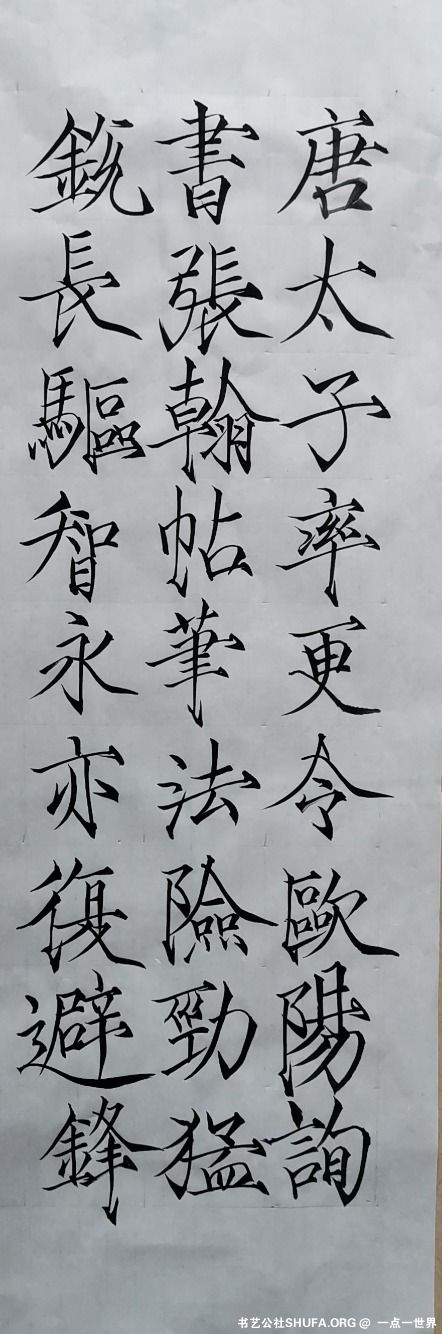 唐太子率更令歐陽詢
書張翰帖筆法險勁猛
銳長驅智永亦復避鋒
书艺公社SHUFA.ORG @ 一点一世界